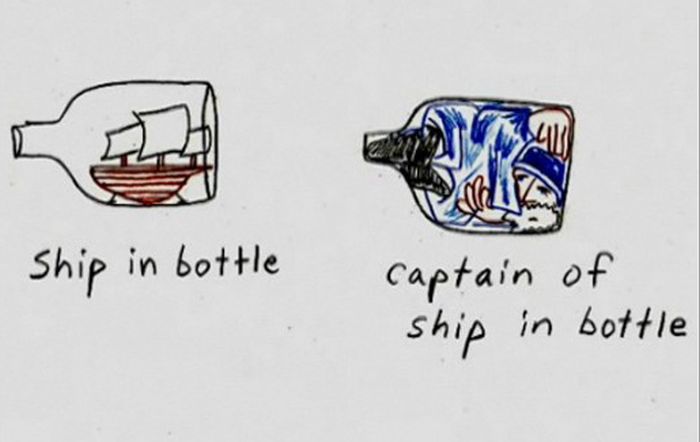 Ship in bottle
captain of
ship in bottle